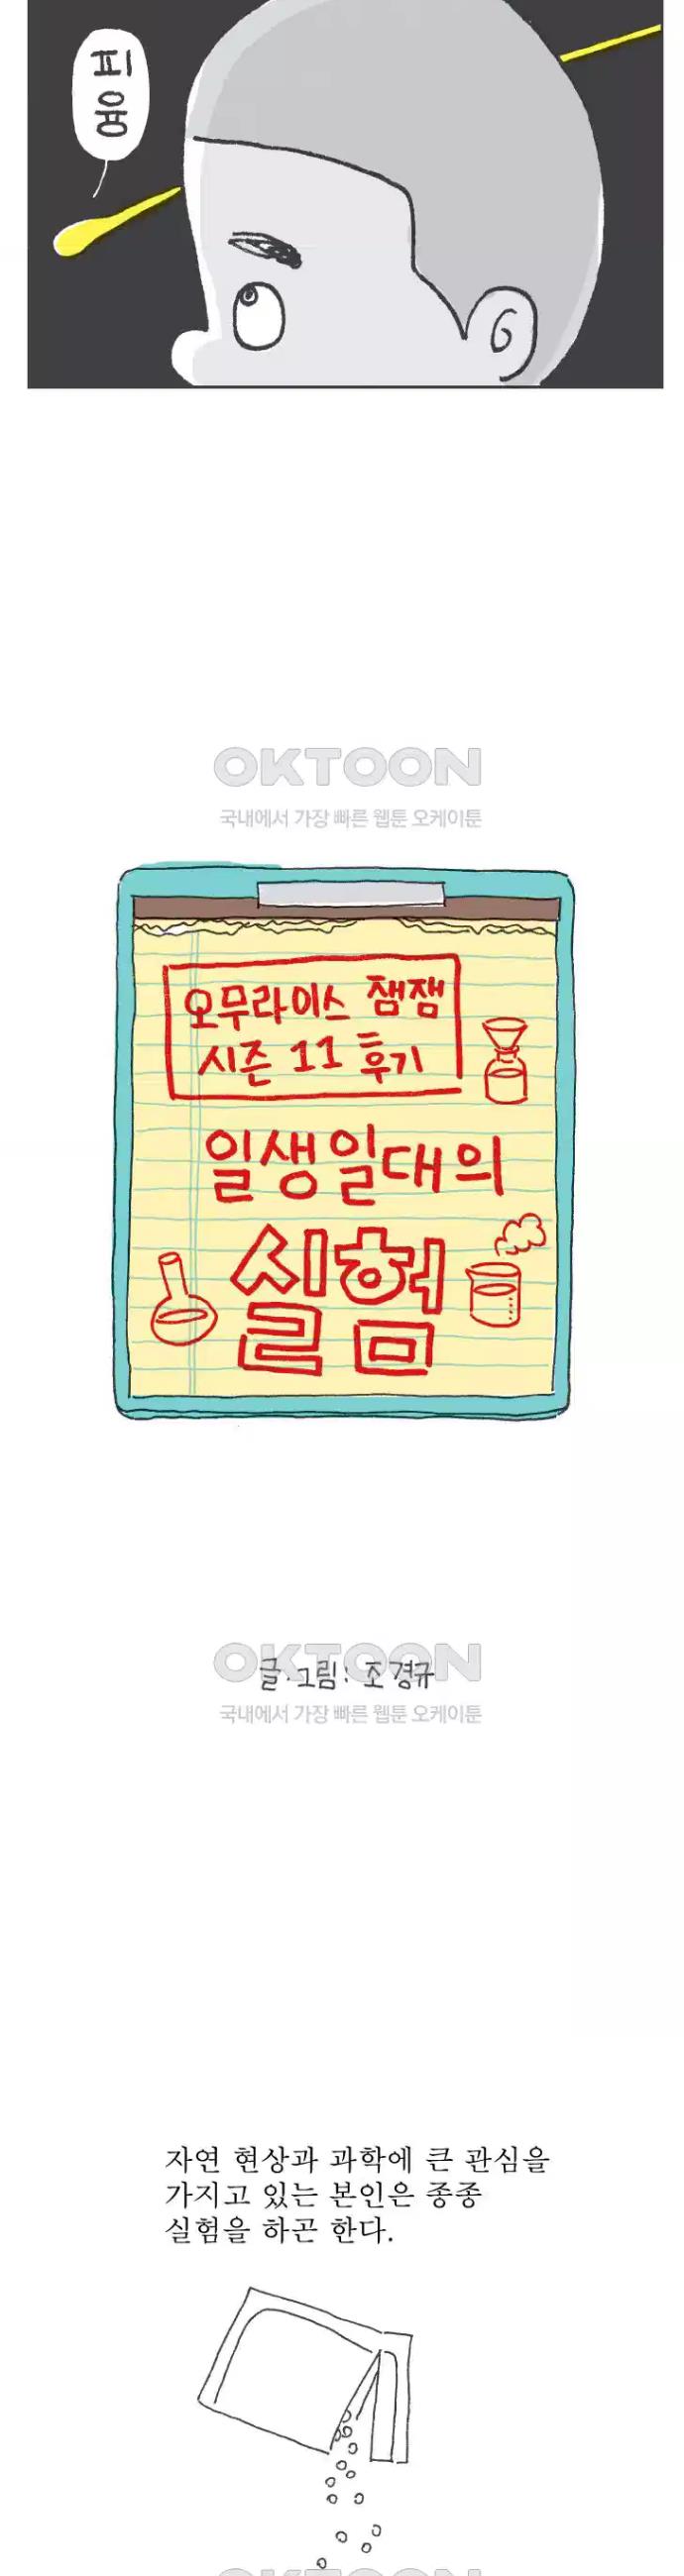 피
융
OKTOON
국내에서 가장 빠른 웹툰 오케이툰
오무라이스 잼잼
시즌 11 후기
일생일대의
실험
OKTOON
글·그림: 조경규
국내에서 가장 빠른 웹툰 오케이툰
자연 현상과 과학에 큰 관심을
가지고 있는 본인은 종종
실험을 하곤 한다.
OKTOON